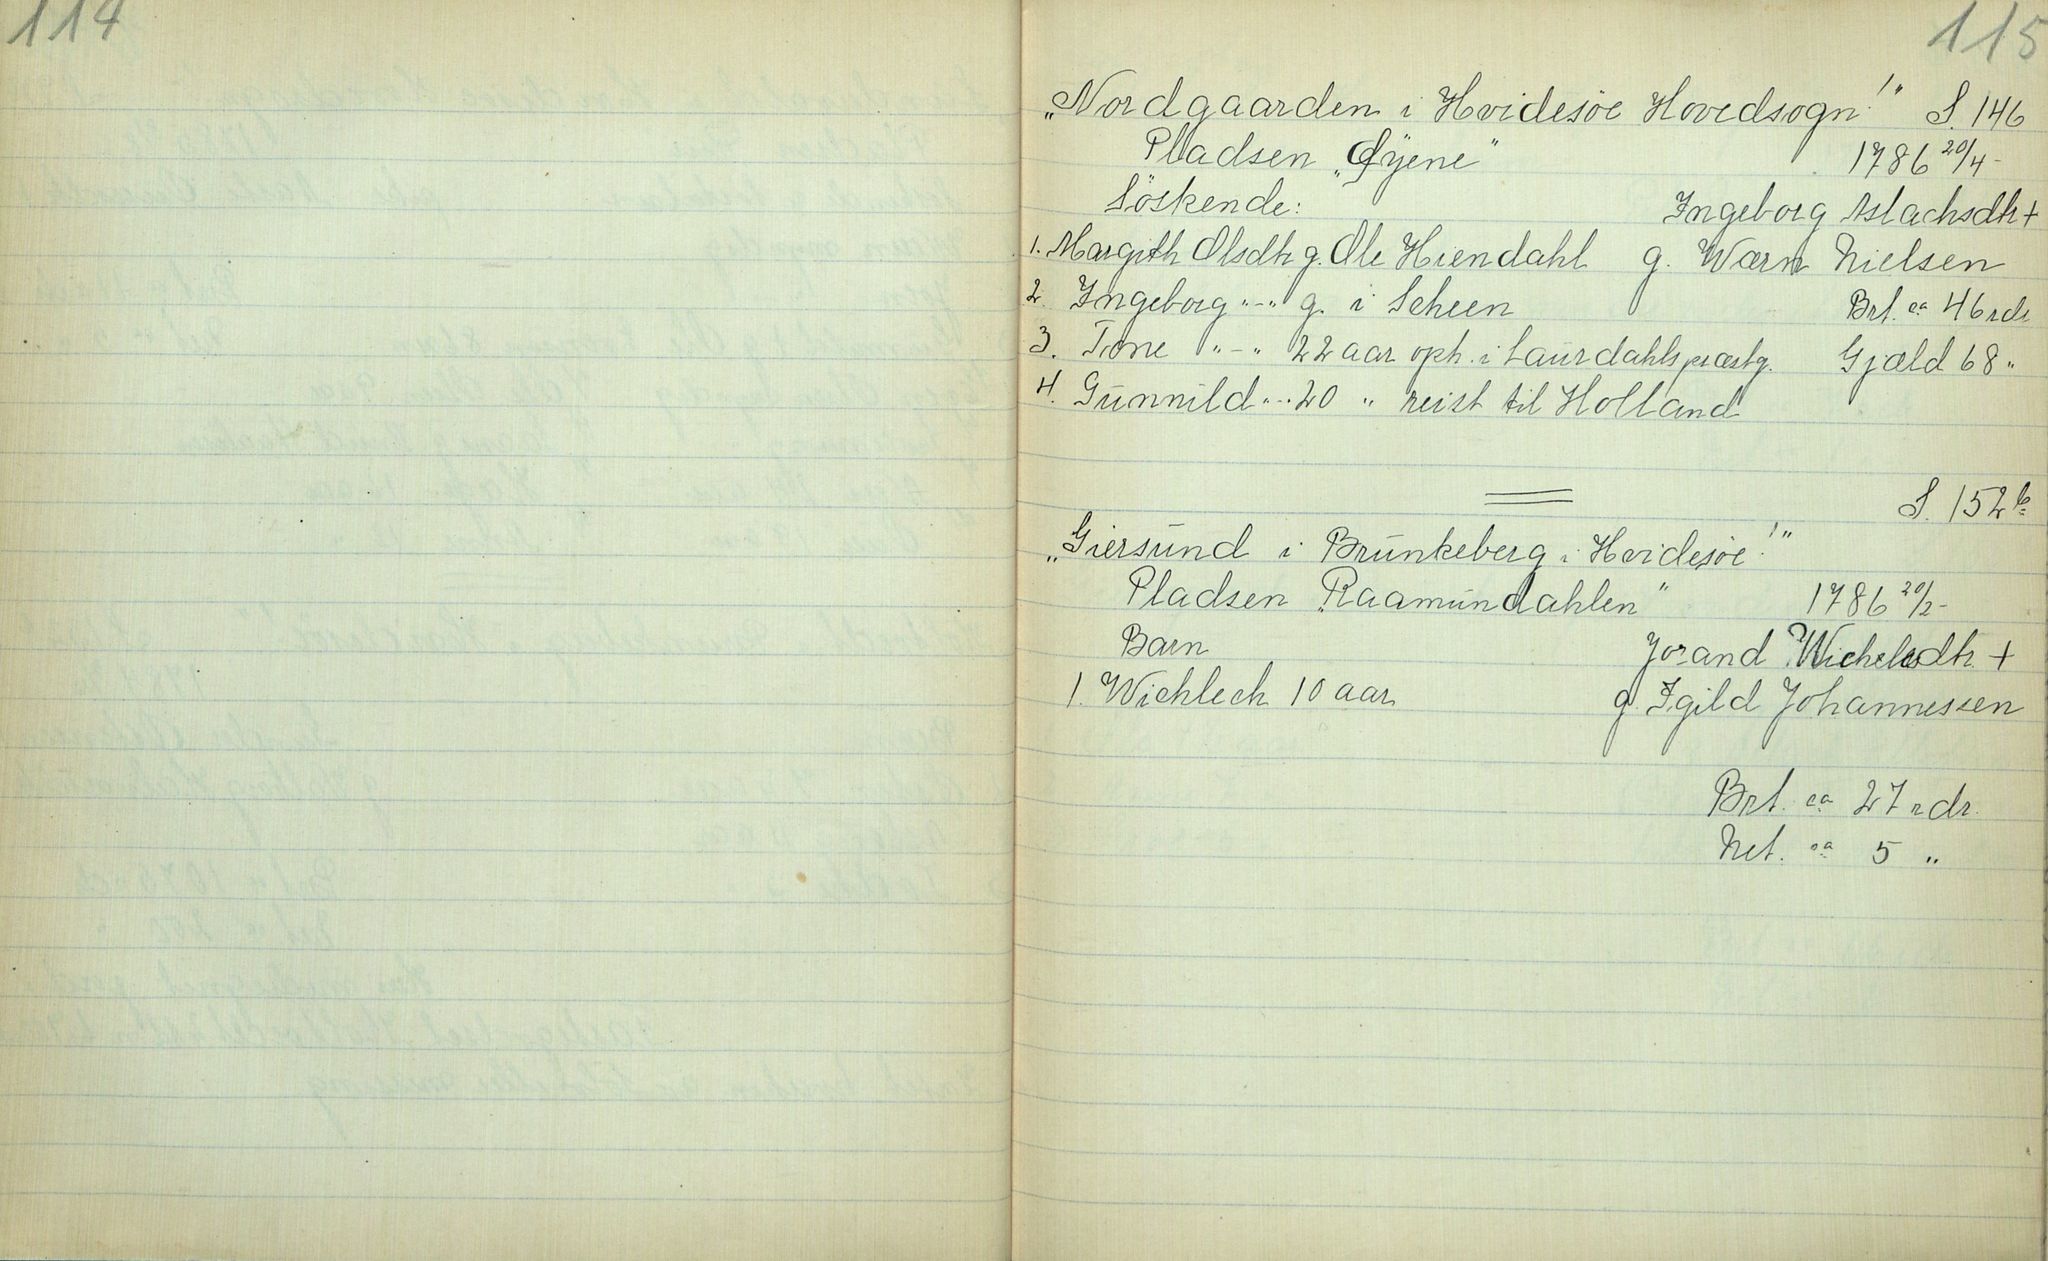 114
115
„Nordgaarden i Hvidesöe Hovedsogn!" S. 146
Pladsen „Øyene" 1786 20/4-
Söskende: Ingeborg Aslachsdtr +
1. Margith Olsdtr g. Ole Hiendahl g. Wærn Nielsen
2. Ingeborg "-" g. i Scheen Brt. ca 46 rdr
3. Tone "-" 22 aar oph. i Laurdahls præstg. Gjæld 68 "
4. Gunnild "-" 20 " reist til Holland
S. 152 b
„Giersund i Brunkeberg i Hvidesöe!"
Pladsen „Raamundahlen" 1786 20/2-
Barn Jorand Wichelsdtr. +
1. Wichlech 10 aar g. Igild Johannessen
Brt. ca 27 rdr.
Net. ca 5 "